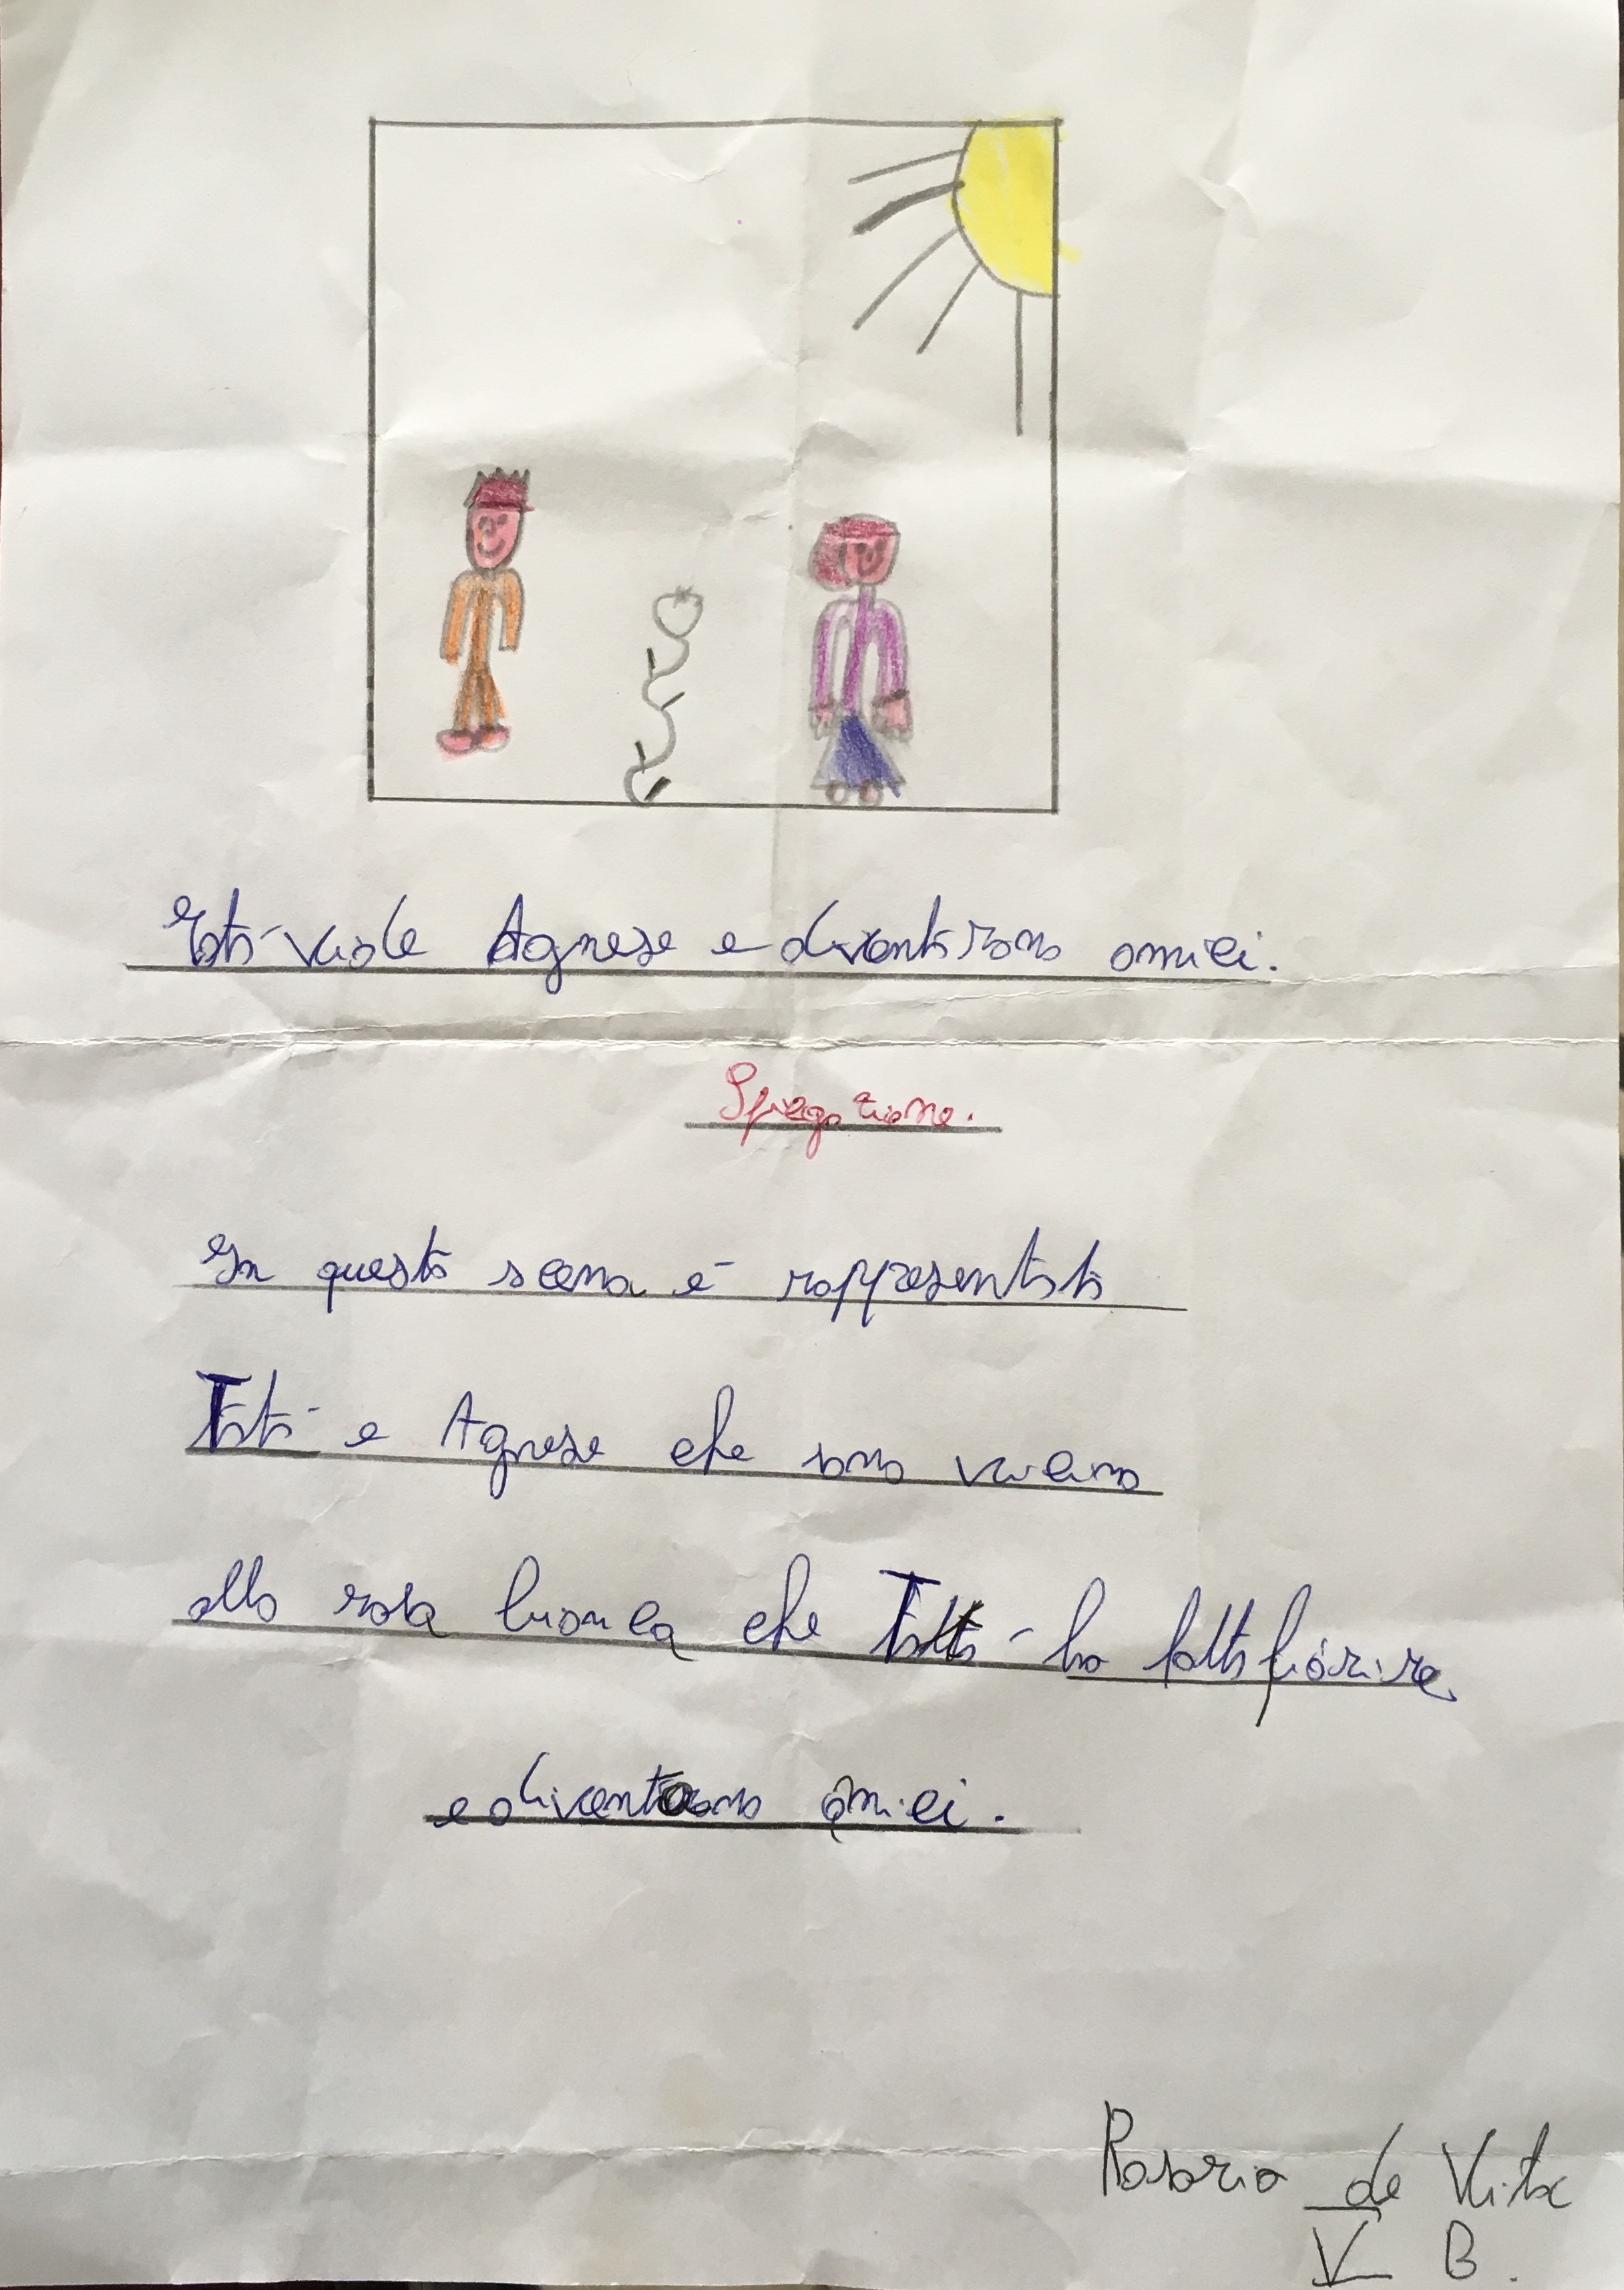 Totò vide Agnese e diventarono amici.
Spiegazione.
In questa scena è rappresentato
Totò e Agnese che sono vicino
alla rosa bianca che Totò ha fatto fiorire
e diventano amici.
Rosario de Vita
V B.